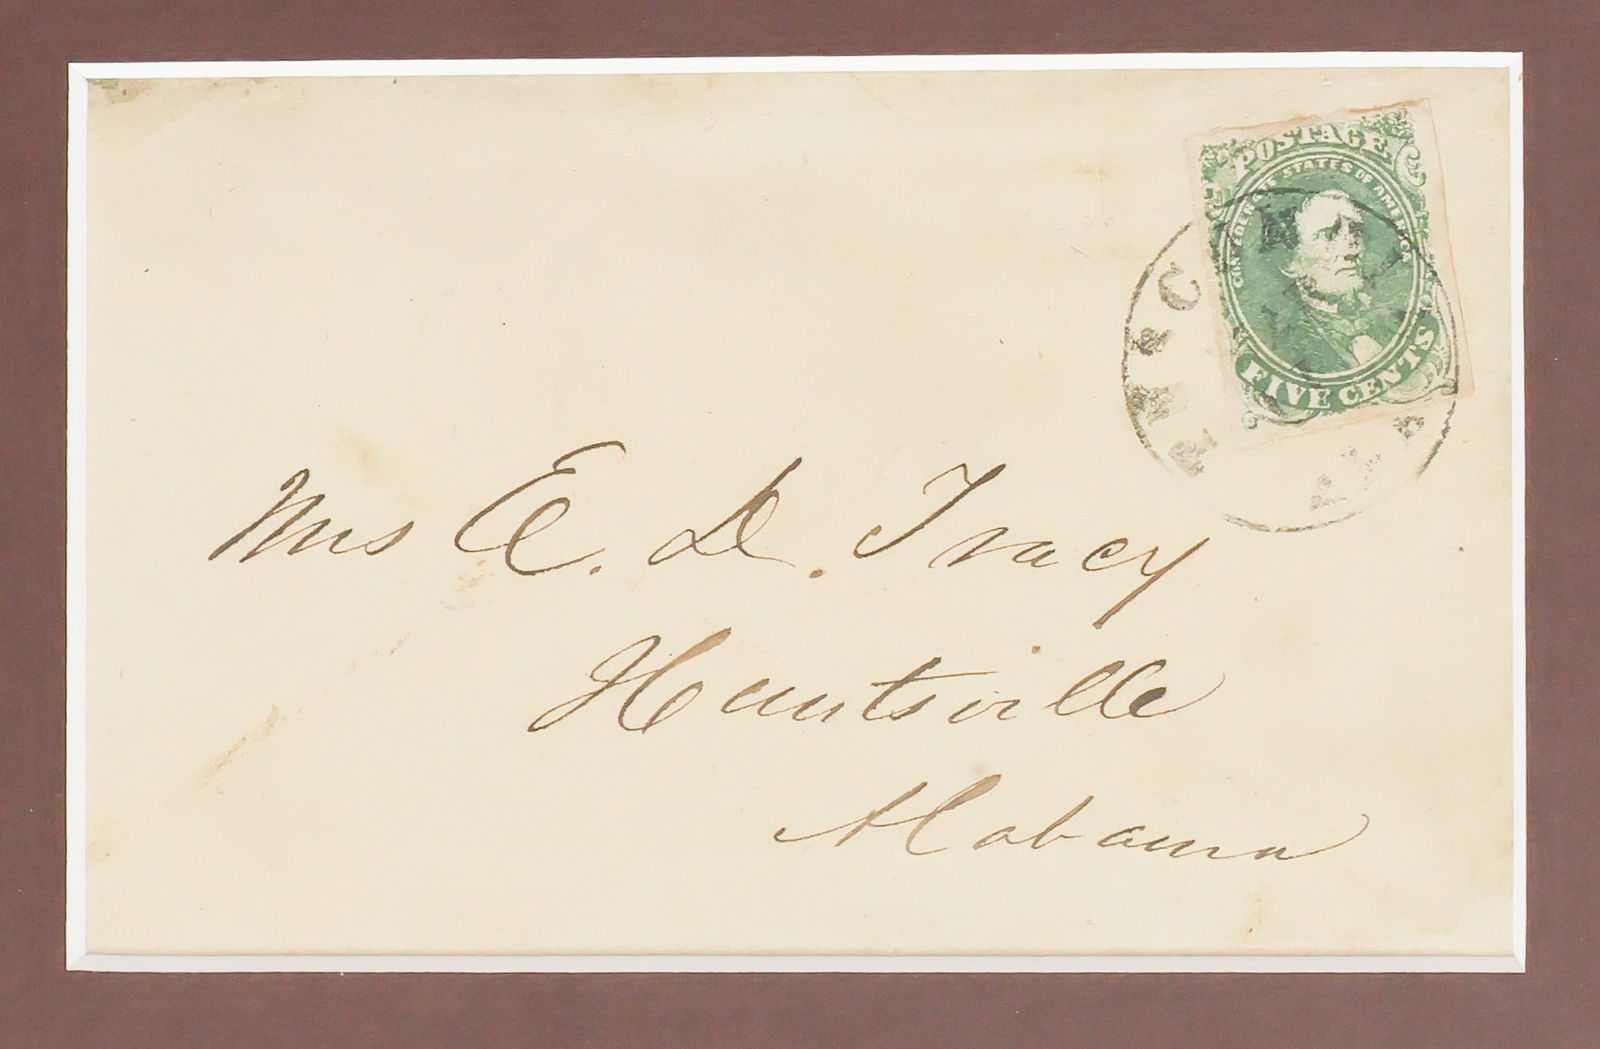 POSTAGE
CONFEDERATE STATES OF AMERICA
FIVE CENTS
Mrs E. D. Tracy
Huntsville
Alabama